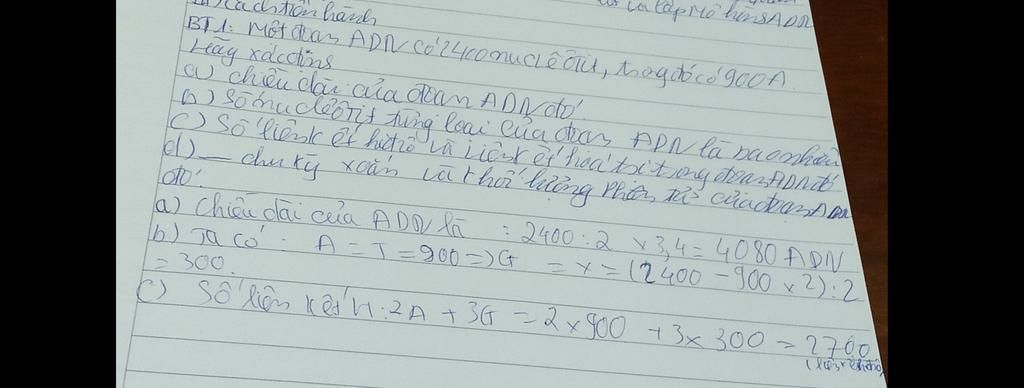 cách tiến hành lắp Mô hình ADN
BT1: Một đoạn ADN có 2400 nuclêôtit, trong đó có 900A.
Hãy xác định
a) chiều dài của đoạn ADN đó.
b) Số nuclêôtit từng loại của đoạn ADN là bao nhiêu
c) Số liên kết hiđrô và liên kết hoá trị trong đoạn ADN đó
d) — chu kỳ xoắn và khối lượng phân tử của đoạn ADN
đó.
a) Chiều dài của ADN là : 2400 : 2 x 3,4 = 4080 ADN
b) Ta có : A = T = 900 => G = X = (2400 - 900 x 2) : 2
= 300.
c) Số liên kết H : 2A + 3G = 2 x 900 + 3 x 300 = 2700